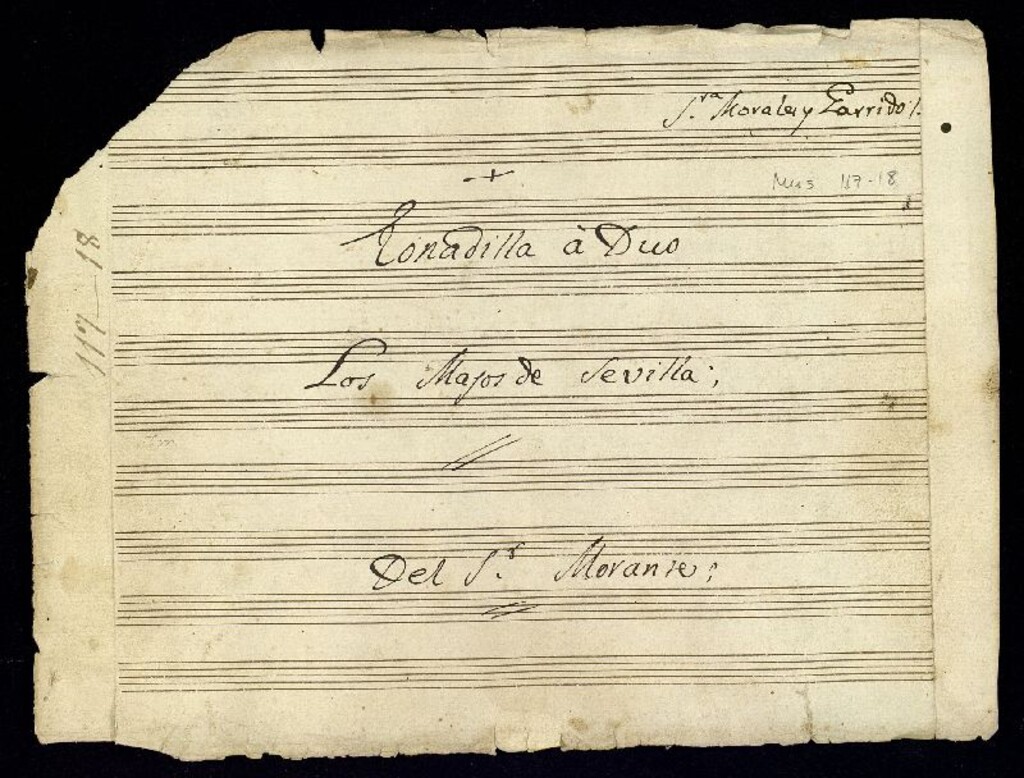 S.ra Morales y Garrido /.
Mus 117-18
Tonadilla à Duo
117-18
Los Majos de Sevilla;
Del S.r Morante;